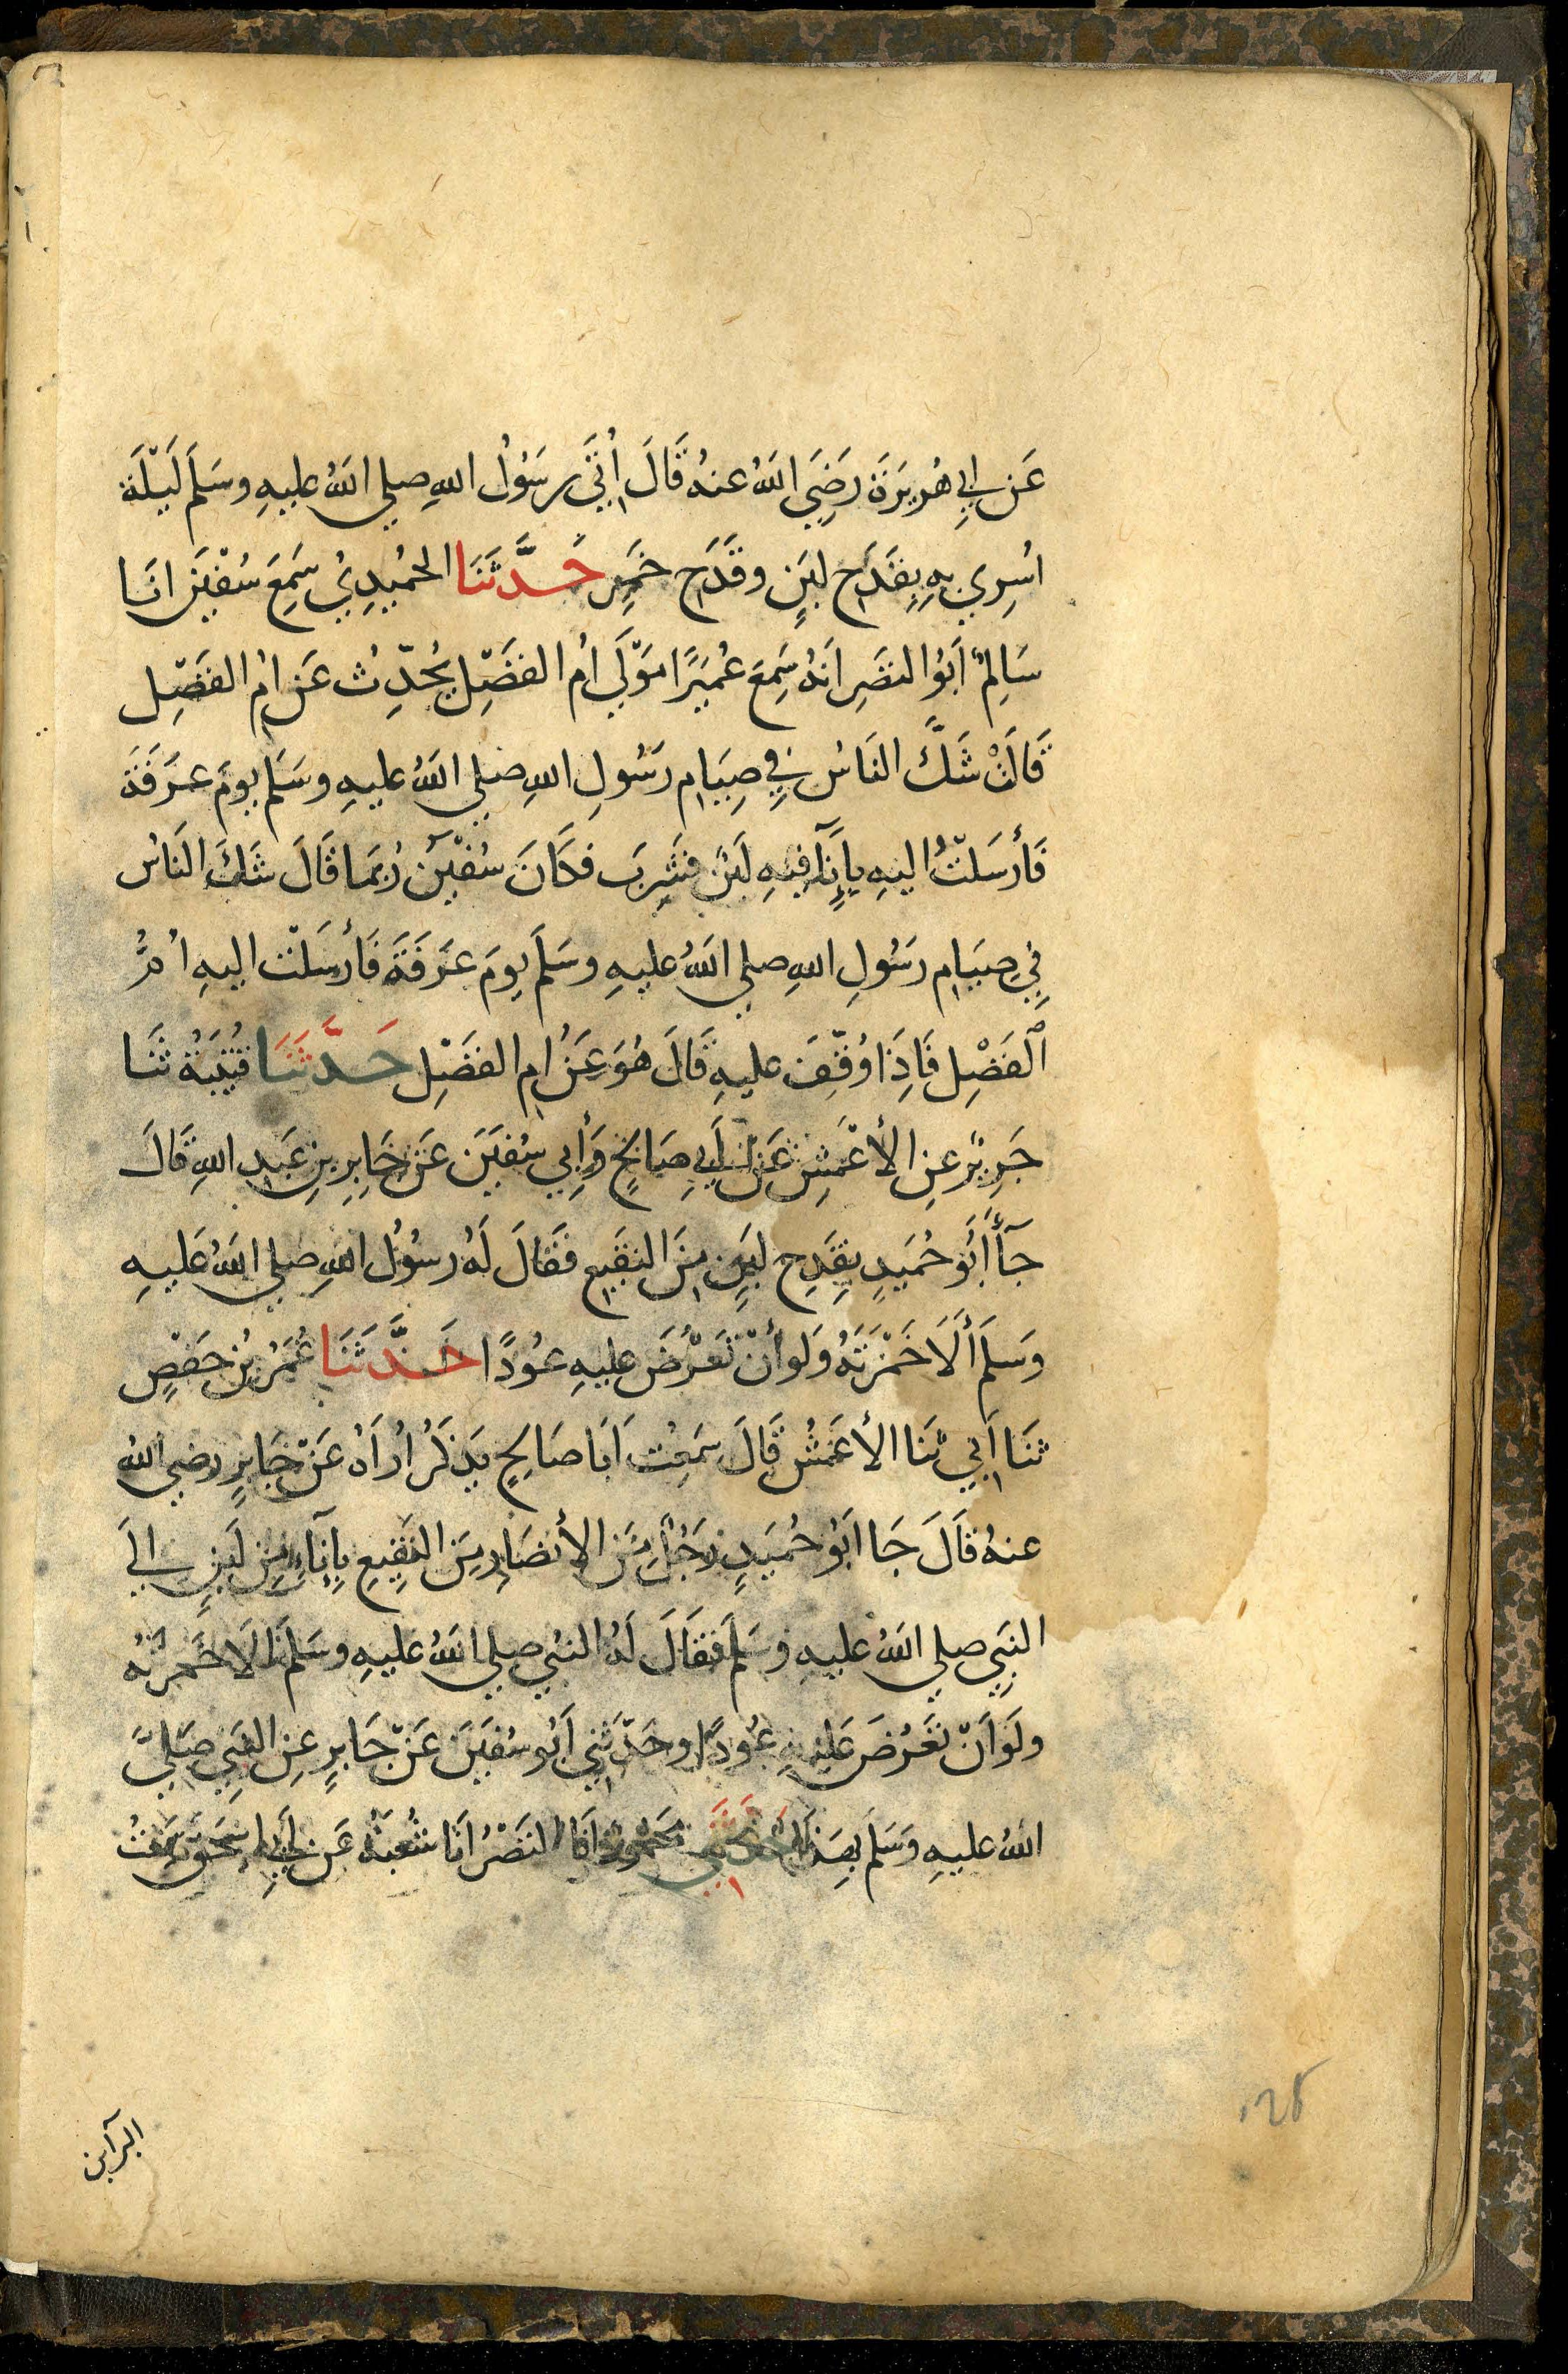 عَن ابِي هُرَيرَة رَضِيَ اللهُ عنهُ قَالَ اُتِيَ رسَوُلُ اللهِ صلي اللهُ عليهِ وسَلَمَ لَيْلَةَ
اسُرِي بِهِ بِقَدَحِ لبَنٍ وقَدَحِ خَمِر حَدَّثَنَا الحُمَيدِيُ سَمِعَ سُفْيَنَ انَا
سَالِمٌ ابَوُ النضَرِ انَهُ سَمِعَ عُمَيَرًا مَوْلَي امُ الفَضْلِ يُحَدِّثُ عَن امُ الفَضْلِ
قَالَتْ شَكَّ النَاسُ فِي صِيَامِ رَسُولِ اللهِ صلي اللهُ عليهِ وسَلَم يومَ عَرَفَةَ
فَأرسَلَتْ اليهِ بِإنَآ فيهِ لَبَنٌ فشَرِبَ فكَانَ سُفْيَن رُبمَا قَالَ شَكَ النَاسُ
فِي صِيَامِ رَسُولِ اللهِ صلي اللهُ عليهِ وسَلَمَ يومَ عَرَفَةَ فَأرسَلَتْ اليهِ اُمُّ
الفَضْلِ فَاِذَا وُقِّفَ عليهِ قَالَ هُوَ عَنْ امِ الفَضْلِ حَدَّثَنَا قُتَيبَةُ ثنَا
جَرِيرٌ عنِ الأعْمَشِ عَنْ اَبِي صَالحٍ وَأبِي سُفيَنَ عَن جَابِرِ بنِ عَبدِ اللهِ قَالَ
جَآءَ أبَوُ حُمَيدٍ بِقَدِحِ لبَنٍ مِنَ النقَيعِ فَقَالَ لَهُ رسُوُلُ اللهِ صلي اللهُ عَليهِ
وَسَلمَ ألَا خَمَرْتَهُ وَلَو أنْ تَعرُضَ عليهِ عُودًا حَدَّثَنَا عُمَرُ بنُ حَفصٍ
ثنَا اَبِي ثنَا الأعَمشُ قَالَ سَمِعْتُ اَبَا صَالحٍ يَذكَرُ ارُاَهُ عَنْ جَابِرٍ رضي الله
عنهُ قَالَ جَا ابَوُ حُمَيدٍ رَجُلٌ مِنَ الأنصَارِ مِنَ النَقِيعِ بِإنَآءٍ مِنِ لَبَنٍ الَي
النبَيِ صلي اللهُ عليهِ وسَلَمَ فقَالَ لَهُ النبَيُ صلي اللهُ عليهِ وسَلمَ الَا خَمرتَهُ
ولَو اَنْ تَعرُضَ عَليهِ عُودًا وحَدَّثَنِي اَبُو سُفيَنَ عَنْ جَابِرٍ عنِ النبَيِ صَلَيَ
اللهُ عليهِ وَسَلمَ بهِذَا حَدَّثَنِي مَحمُودٌ انَا النَضْرُ انَا شُعبَةُ عَن اَبِي اِسحَق سَمِعْتُ
البرآبن
١٢٨